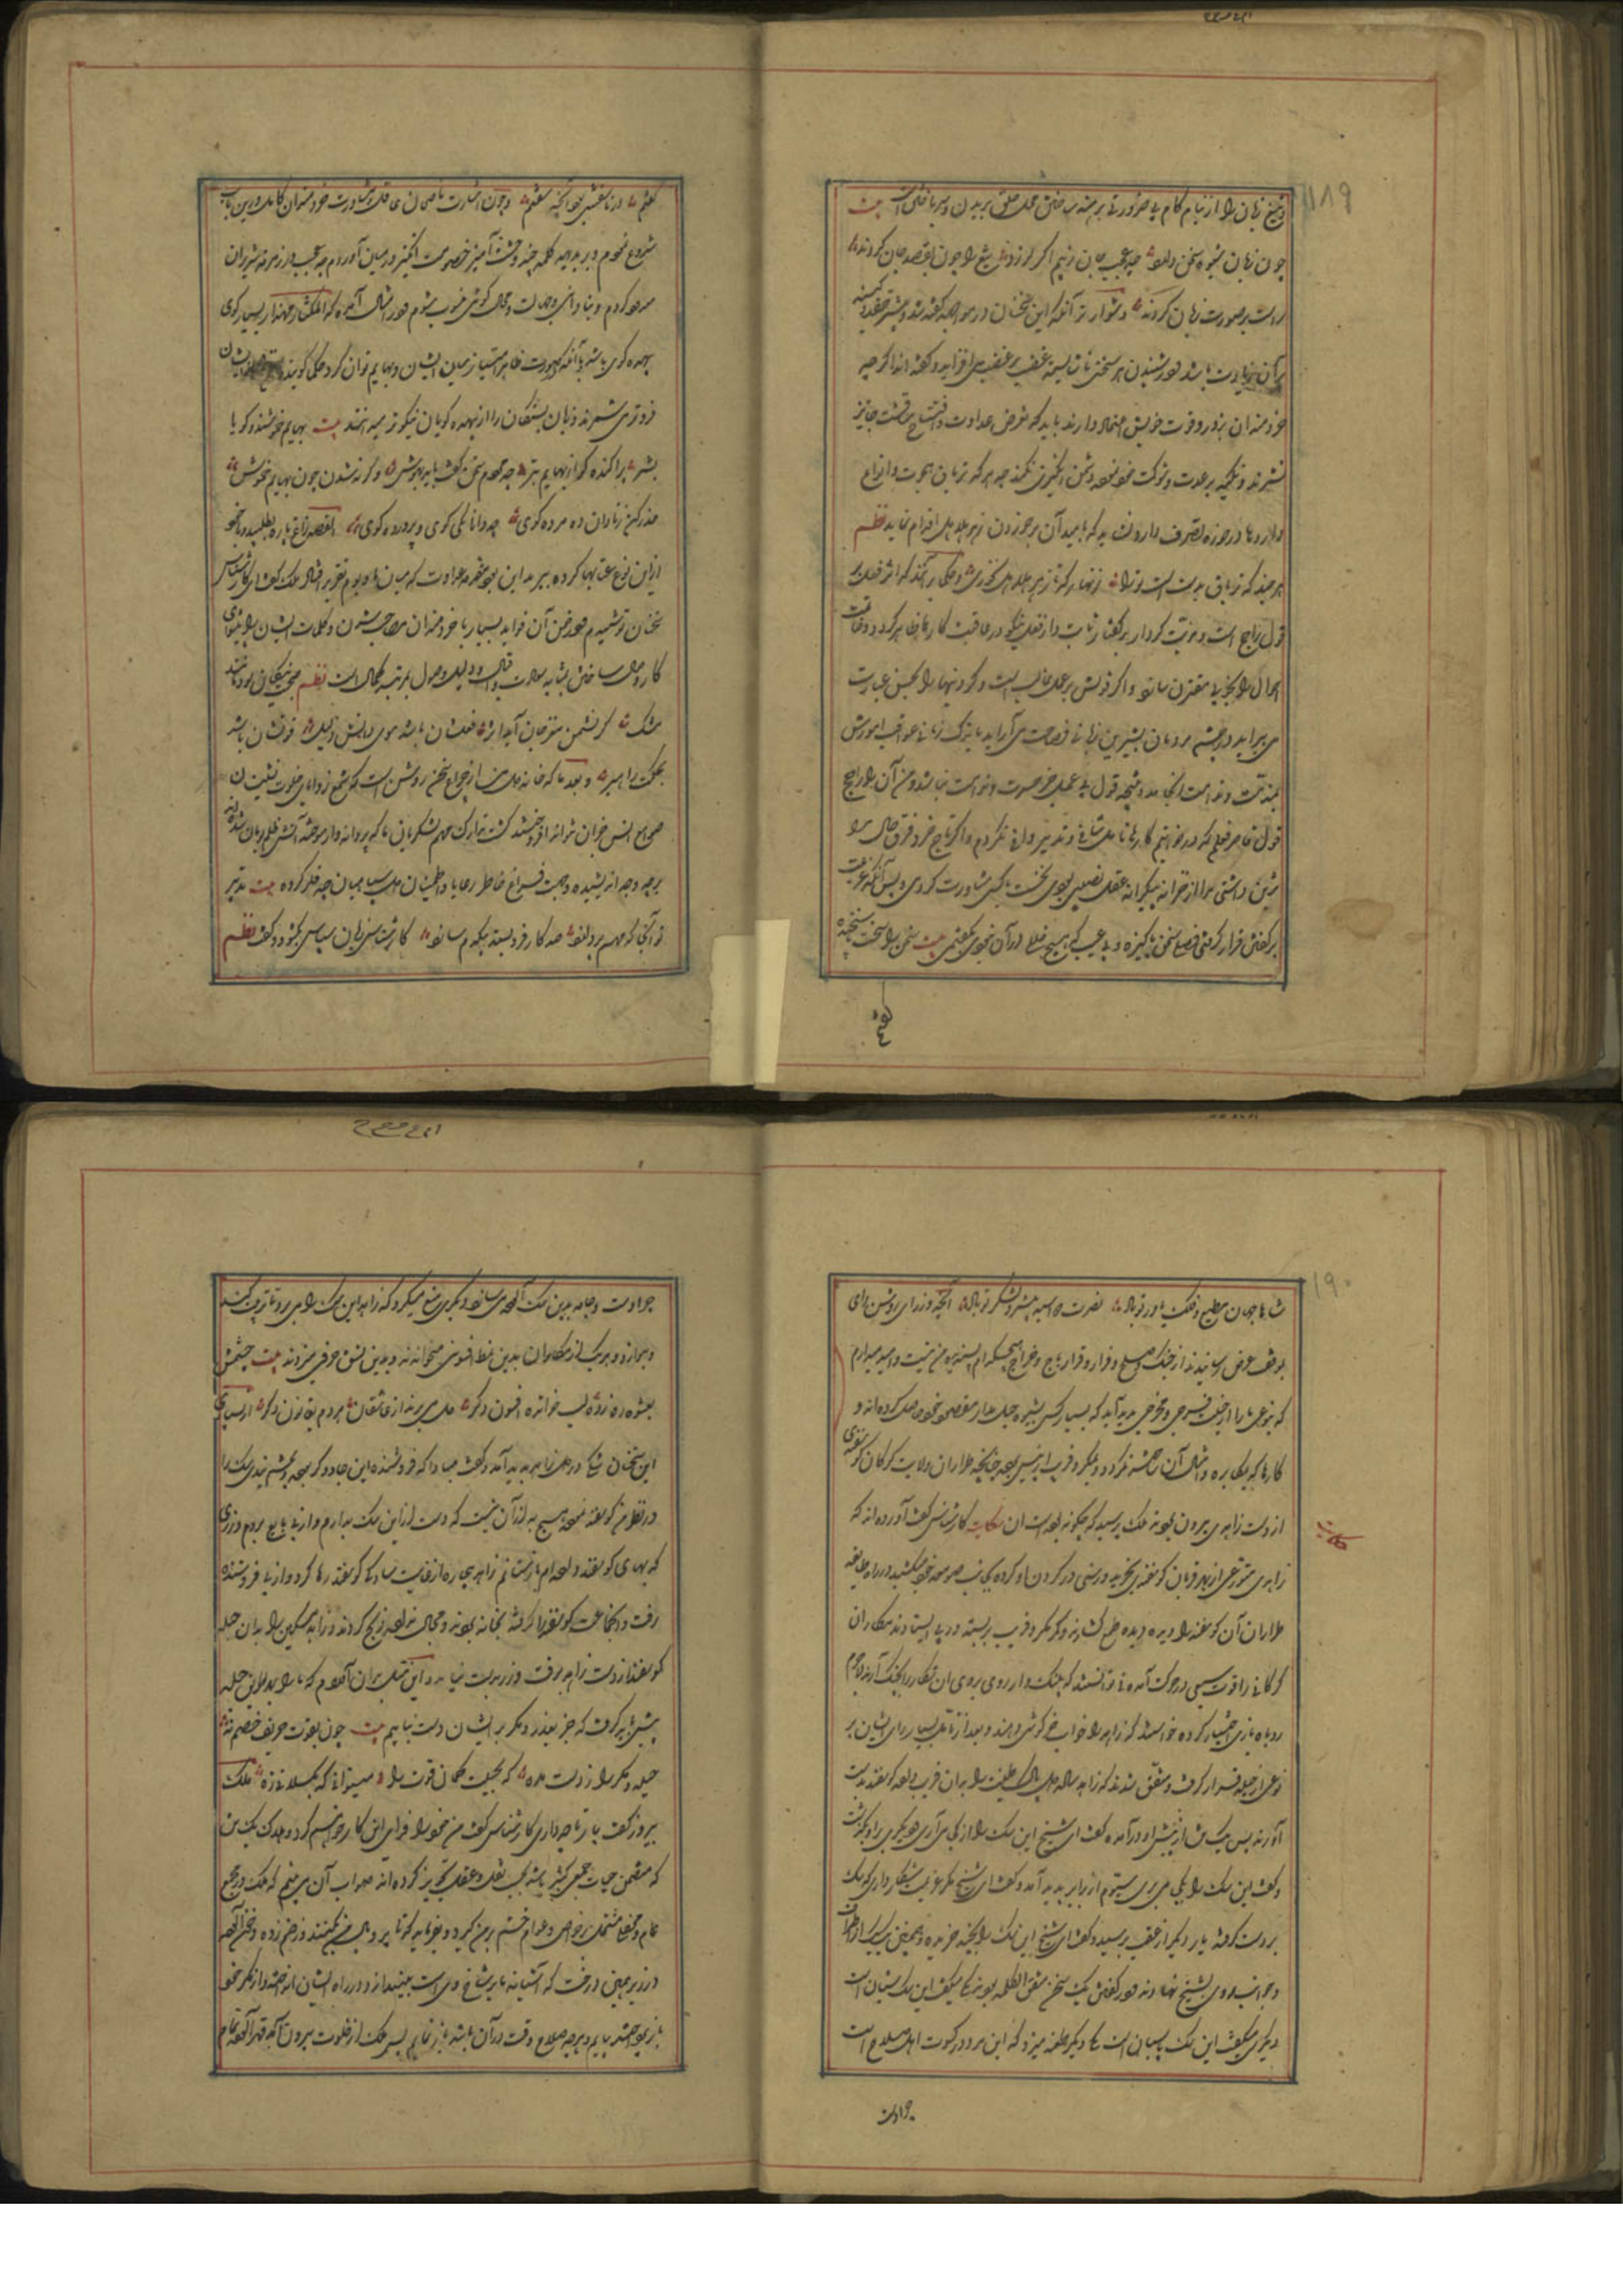 ۱۸۹
و تیغ زبان را از نیام کام بی ضرورتی برهنه ساختن محل حلق بریدن و سر باختن است بیت
چون زبان بشیوه سخن راند چه عجب جان زتیم اگر لرزد تیغ را چون بقصد جان کردند
راست بر صورت زبان کردند و دشوارتر آنکه این سخنان در مواجهه گفته شد و بیشتر حقد و کینه
بر آن زیادت باشد و در شنیدن هر سخنی غضب بر غضب می افزاید و گفته اند اگرچه
خردمندان بزور و قوت خویش اعتماد دارند باید که تعرض عداوت و افتتاح مناقشت جایز
نشمرند و تکیه بر عدت و شوکت خود نموده دشمن انگیزی نکنند چه هر که تریاق مجرب و انواع
داروها در حوزه تصرف دارد نشاید که بامید آن بر خوردن زهر هلاهل اقدام نماید نظم
هرچند که تریاق بدست است ترا زنهار که تا زهر هلاهل نخوری و حکما برآنند که اثر فعل بر
قول راجح است و مزیت کردار بر گفتار ثابت و اثر فعل نیکو در عاقبت کارها ظاهر گردد و خاتمت
احوال را بخیر مقترن سازد و آنکه قولش بر عمل غالب است و کردنیها را بحسن عبارت
می آراید و در چشم مردمان بشیرین زبانی و فصاحت می آراید باندک زمانی عواقب امورش
بمذمت و ندامت انجامد و نتیجه قول بی عمل جز حسرت و ندامت نباشد و من آن راجح
قول قاصر فعلم که در خواتیم کارها تامل شافی و تدبیر وافی نکردم و اگر تاج خرد فرق حال مرا
مزین داشتی و مرا از خزانه بیکرانه عقل نصیبی بودی نخست با کسی مشاورت کردمی و پس از آنکه عزیمت
بر گفتن قرار گرفتی فصلی سخن پاکیزه و بی عیب که هیچ خلل در آن نبودی بگفتمی بیت سخن را سخت سنجیده
گفتم و در ناسفتنی بود آنچه سفتم و چون بی اشارت ناصحان عاقل و مشاورت خردمندان کامل درین باب
شروع نمودم و بر بدیهه کلمه چند وحشت آمیز خصومت انگیز در میان آوردم چه عجب اگر در زمره شریران
معدود گردم و بنادانی و جهالت منسوب شوم و در امثال آمده که المکثار مهذار بسیار گوی
بیهده گوی باشد با آنکه بصورت ظاهر امتیاز میان انسان و بهایم توان کرد حکما گویند
فروتر می شمرند و زبان بستگان را از بیهده گویان نیکوتر می دانند بیت بهایم خموشند و گویا
بشر پراکنده گوی از بهایم بتر چو مردم سخن گفت باید بهوش و گر نه شدن چون بهایم خموش
حذر کن ز نادان ده مرده گوی چو دانا یکی گوی و پرورده گوی القصه زاغ پاره بطپید و با خود
ازین نوع عتابها کرده بپرید این بود مقدمه عداوت که میان ما و بوم تقریر افتاد ملک گفت ای کارشناس
سخنان تو شنیدم و در ضمن آن فواید بسیار با خردمندان مصاحب شدن و کلمات ایشان را پیشوای
کار و حال ساختن نشانه سعادت و اقبال و دلیل وصول بمرتبه کمال است نظم صحبت نیکان بود مانند
مشک کز نسیمش مغز جان آید اثر فعلشان باشد سوی دانش دلیل قولشان باشد
بحکمت راهبر و بعد ما که خانه دل من از چراغ سخن روشن است که شمع زوایای خلوت نشینان
صوامع انس از آن توانند افروخت تدارک مهم لشکریان ما که پروانه وار سوخته آتش ظلم بومان شده اند
بر چه وجه اندیشیده و جهت فراغ خاطر رعایا و اطمینان دل سپاهیان چه فکر کرده بیت تدبیر
تو آنجا که مهمه پردازد صد کار فروبسته بیکدم سازد کارشناس زبان سپاس بگشود و گفت نظم
۱۹۰
شاها جهان مطیع و فلک یاور تو باد نصرت همیشه پیشرو لشکر تو باد آنچه وزرای روشن رای
بموقف عرض رسانیدند از جنگ و صلح و فرار و قرار باج و خراج هیچکدام پسندیده من نیست و امید میدارم
که بنوعی ما را از حیلت فرجی و مخرجی پدید آید که بسیار کس بشیوه حیل مدار مقصود خود حاصل کرده اند و
کارها که بمکابره و امثال آن ساخته نگردد و بمکر و فریب از پیش برده چنانچه طراران ولایت گرگان گوسفندی
از دست زاهدی بیرون بردند ملک پرسید که چگونه بوده است آن حکایت کارشناس گفت آورده اند که
زاهدی متورع از بهر قربان گوسفندی خریده و رسنی در گردن او کرده بجانب صومعه خود میکشید در راه طایفه
حکایت
طراران آن گوسفند را دیده دیده طمع گشادند و کمر مکر و فریب بربسته در پی ایستادند مکاران
گرگانی را قوت سبعی در حرکت آمده نتوانستند که پلنگ وار روی بروی آن شکار را بچنگ آرند لاجرم
روباه بازی اختیار کرده خواستند که زاهد را خواب خرگوشی دهند و بعد از تامل بسیار رای ایشان بر
نوعی از حیله قرار گرفت و متفق شدند که زاهد ساده دل پاک طینت را بدان فریب داده گوسفند بدست
آورند پس یک تن از پیش او درآمده گفت ای شیخ این سگ را از کجا می آری و دیگری بر او بگذشت
و گفت این سگ را بکجا می بری سیوم از برابر پدید آمد و گفت ای شیخ مگر عزیمت شکار داری که سگ
بر دست گرفته یار دیگر از عقب برسید و گفت ای شیخ این سگ را بچند خریده و همچنین هر یک از اطراف
و جوانب روی بشیخ نهادند و در گفتن یک سخن متفق الکلمه بودند یکی میگفت این سگ شبان است
دیگری میگفت این سگ پاسبان است یکی دیگر طعنه میزد که این مرد در کسوت اهل صلاح است
جرا دست
چرا دست و جامه بدین سگ آلوده می سازد و دیگری منع میکرد که زاهد این سگ را می برد تا تربیت کند
و بنوازد و هریک از مکاران بدین نمط افسونی میخواندند و بدین نسق حرفی میزدند بیت چشمش
بعشوه ره زد و لب خوانده افسون دگر دل می برند از عاشقان هر دم بقانون دگر از بسیاری
این سخنان شکی در دل زاهد پدید آمد و گفت مبادا که فروشنده این جادوگر بوده و بچشم بندی سگ را
در نظر من گوسفند نموده هیچ به از آن نیست که دست ازین سگ بدارم و از پی بایع بروم و زری
که بهای گوسفند داده ام باز ستانم زاهد بیچاره از غایت ساده دلی گوسفند رها کرد و از پی فروشنده
رفت و آن جماعت گوسفند را گرفته بخانه بردند و مجال نداده ذبح کردند و زاهد مسکین را بدان حیله
گوسفند از دست زاهد برفت و زر بدست نیامد و این مثل بدان آوردم که ما را بدین حیله
پیش باید گرفت که جز بغدر و مکر بر ایشان دست نیابیم بیت چون بقوت حریف خصم نه
حیله و مکر را ز دست مده که بحیلت کمان قوت را میتوانی که بگسلانی زه ملک
پیروز گفت بیار تا چه داری کارشناس گفت من خود را فدای این کار خواهم کرد و هلاک یک تن
که متضمن حیات جمعی کثیر باشد بحسب نقل و عقل تجویز کرده اند صواب آن می بینم که ملک در مجمع
عام و محفلی مشتمل بر خواص و عوام خشم بر من گیرد و بفرماید که تا پر و بال من بکنند و زخم زده و خون آلود
در زیر همین درخت که آشیانه ما بر شاخ وی است بیندازند و در راه ایشان انداخته و از مکر خود
باز پرداخته بیایم و هرچه صلاح وقت در آن باشد باز نمایم پس ملک از خلوت بیرون آمد قهر آلود تمام